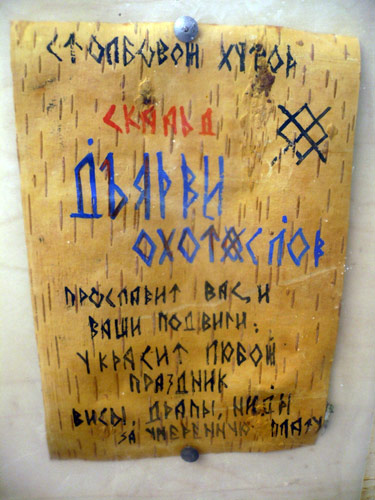 СТОЛБОВОЙ ХУТОР
СКАЛЬД
ДЪЯРВИ
ОХОТАСЛОВ
ПРОСЛАВИТ ВАС, И
ВАШИ ПОДВИГИ;
УКРАСИТ ЛЮБОЙ
ПРАЗДНИК
ВИСЫ, ДРАПЫ, НИДЫ
ЗА УМЕРЕННУЮ ПЛАТУ